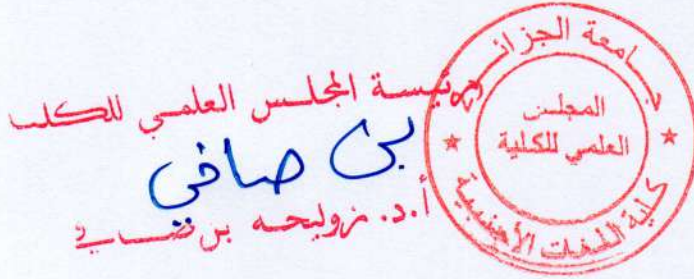 رئيسة المجلس العلمي للكلية
بن صافي
أ.د. زوليخة بن صافي
جامعة الجزائر
المجلس
العلمي للكلية
كلية اللغات الأجنبية